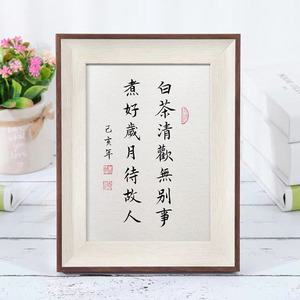 白茶清歡無别事
煮好歲月待故人
己亥年